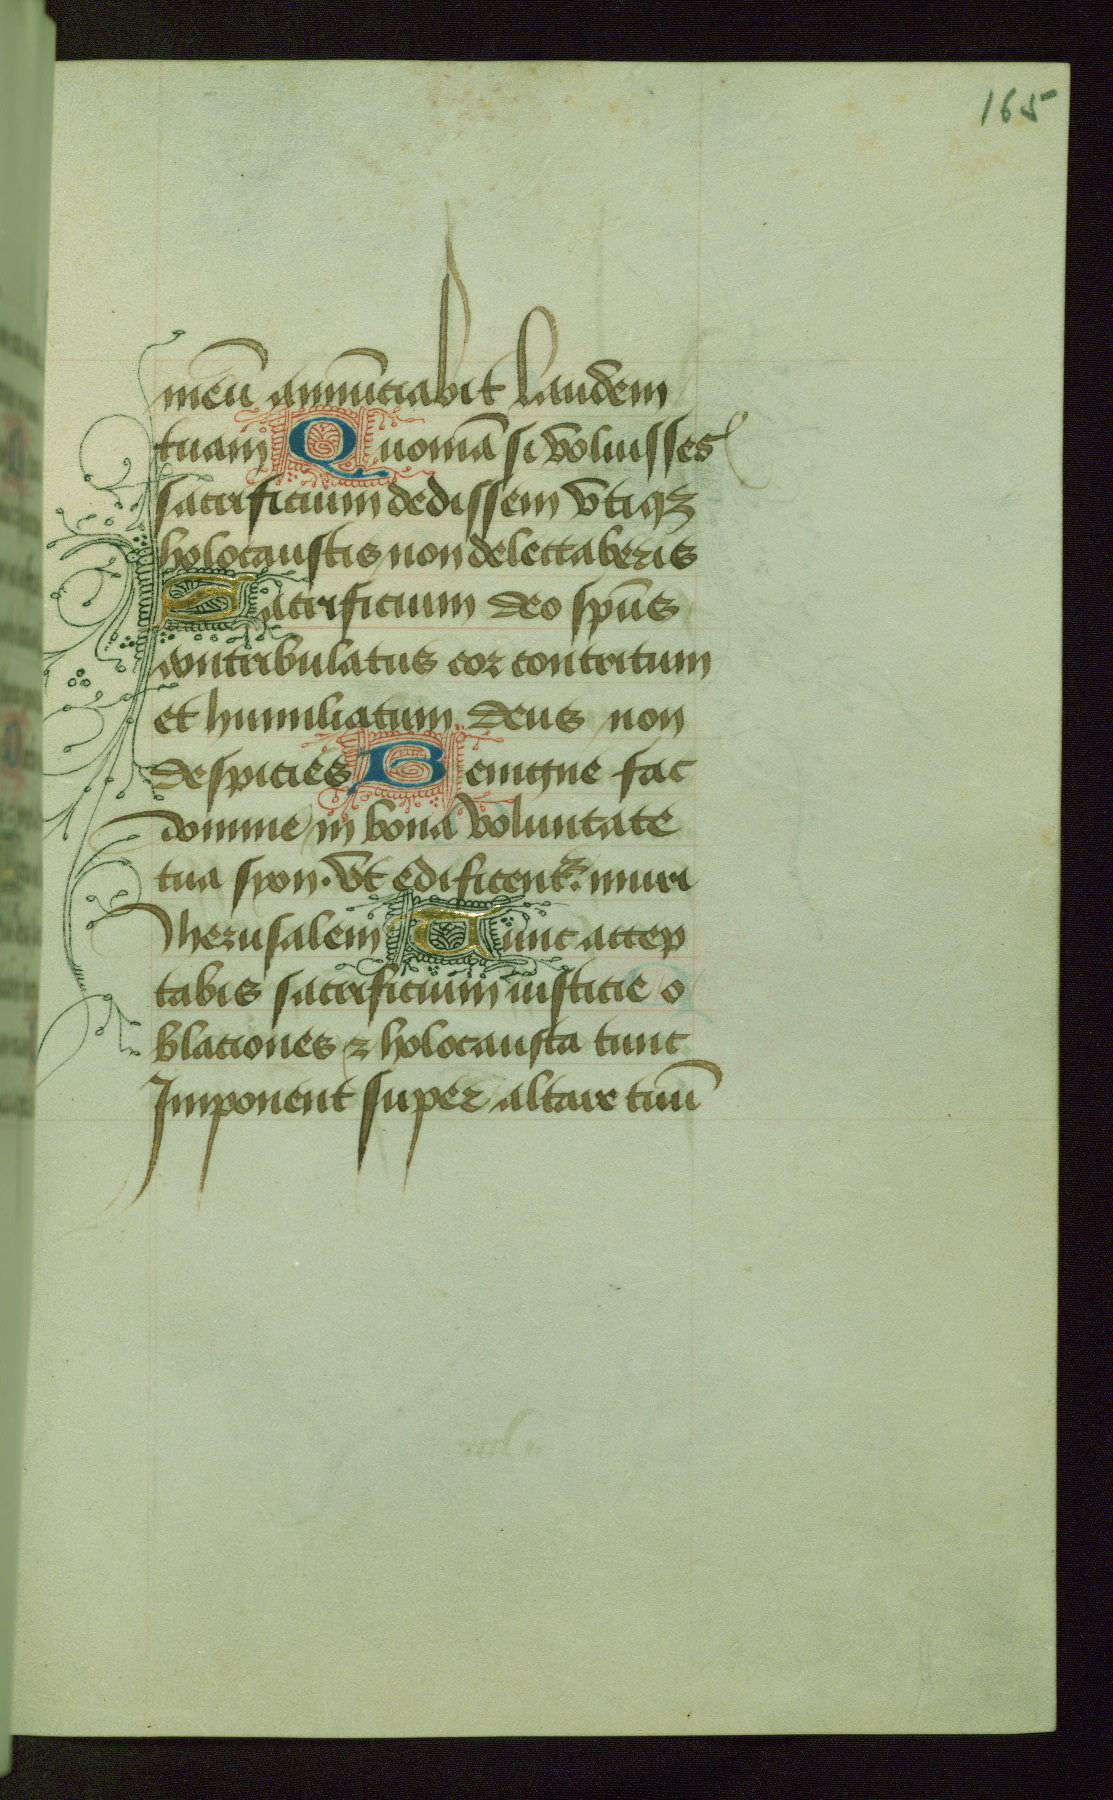 165
meū annūciabit laudem
tuam Quoniā si voluisses
sacrificium dedissem vtiqȝ
holocaustis non delectaberis
Sacrificium deo spūs
contribulatus cor contritum
et humiliatum deus non
despicies Benigne fac
domine in bona voluntate
tua syon. vt edificentᷣ muri
Iherusalem Tunc accep
tabis sacrificium iusticie o
blaciones ⁊ holocausta tunc
Imponent super altare tuū